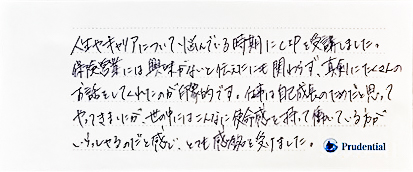 人生やキャリアについて悩んでいる時期にCIPを受講しました。
保険営業には興味がないと伝えたにも関わらず、真剣にたくさんの
お話をしてくれたのが印象的です。仕事は自己成長のためだと思って
やってきましたが、世の中にはこんなに使命感を持って働いている方が
いらっしゃるのだと感じ、とても感銘を受けました。
Prudential